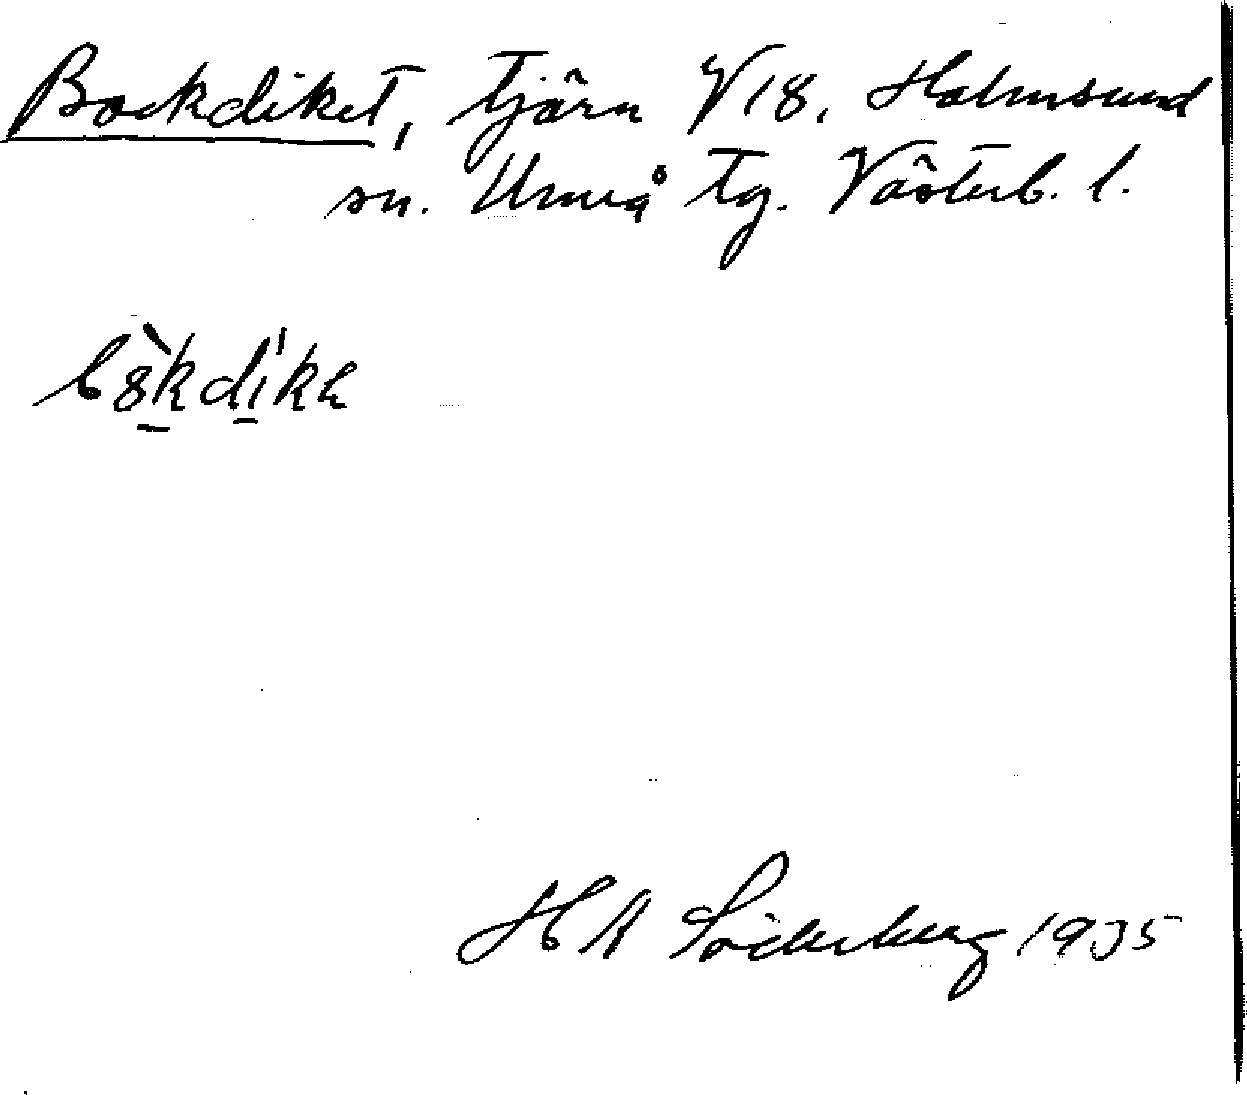 Bockdiket, tjärn V 18. Holmsund
sn. Umeå tg. Västerb. l.
bòkdi'kh
H A Söderberg 1935